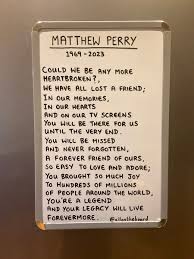 MATTHEW PERRY
1969-2023
COULD WE BE ANY MORE
HEARTBROKEN?,
WE HAVE ALL LOST A FRIEND;
IN OUR MEMORIES,
IN OUR HEARTS
AND ON OUR TV SCREENS
YOU WILL BE THERE FOR US
UNTIL THE VERY END.
YOU WILL BE MISSED
AND NEVER FORGOTTEN,
A FOREVER FRIEND OF OURS,
SO EASY TO LOVE AND ADORE;
YOU BROUGHT SO MUCH JOY
TO HUNDREDS OF MILLIONS
OF PEOPLE AROUND THE WORLD,
YOU'RE A LEGEND
AND YOUR LEGACY WILL LIVE
FOREVERMORE. @allontheboard